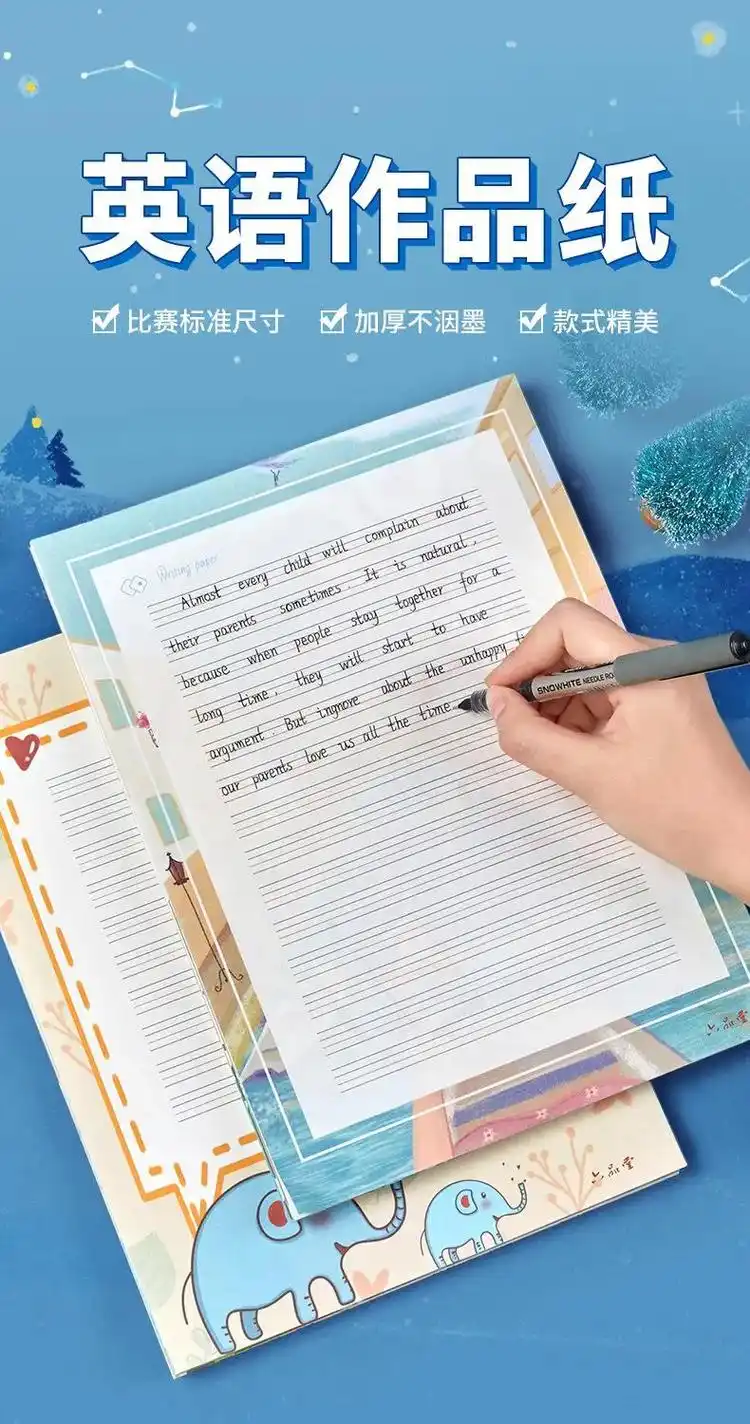 英语作品纸
比赛标准尺寸 加厚不洇墨 款式精美
Writing paper
Almost every child will complain about
their parents sometimes. It is natural,
because when people stay together for a
long time, they will start to have
argument. But ingnore about the unhappy ti
our parents love us all the time
SNOWHITE NEEDLE RO
六品堂
六品堂